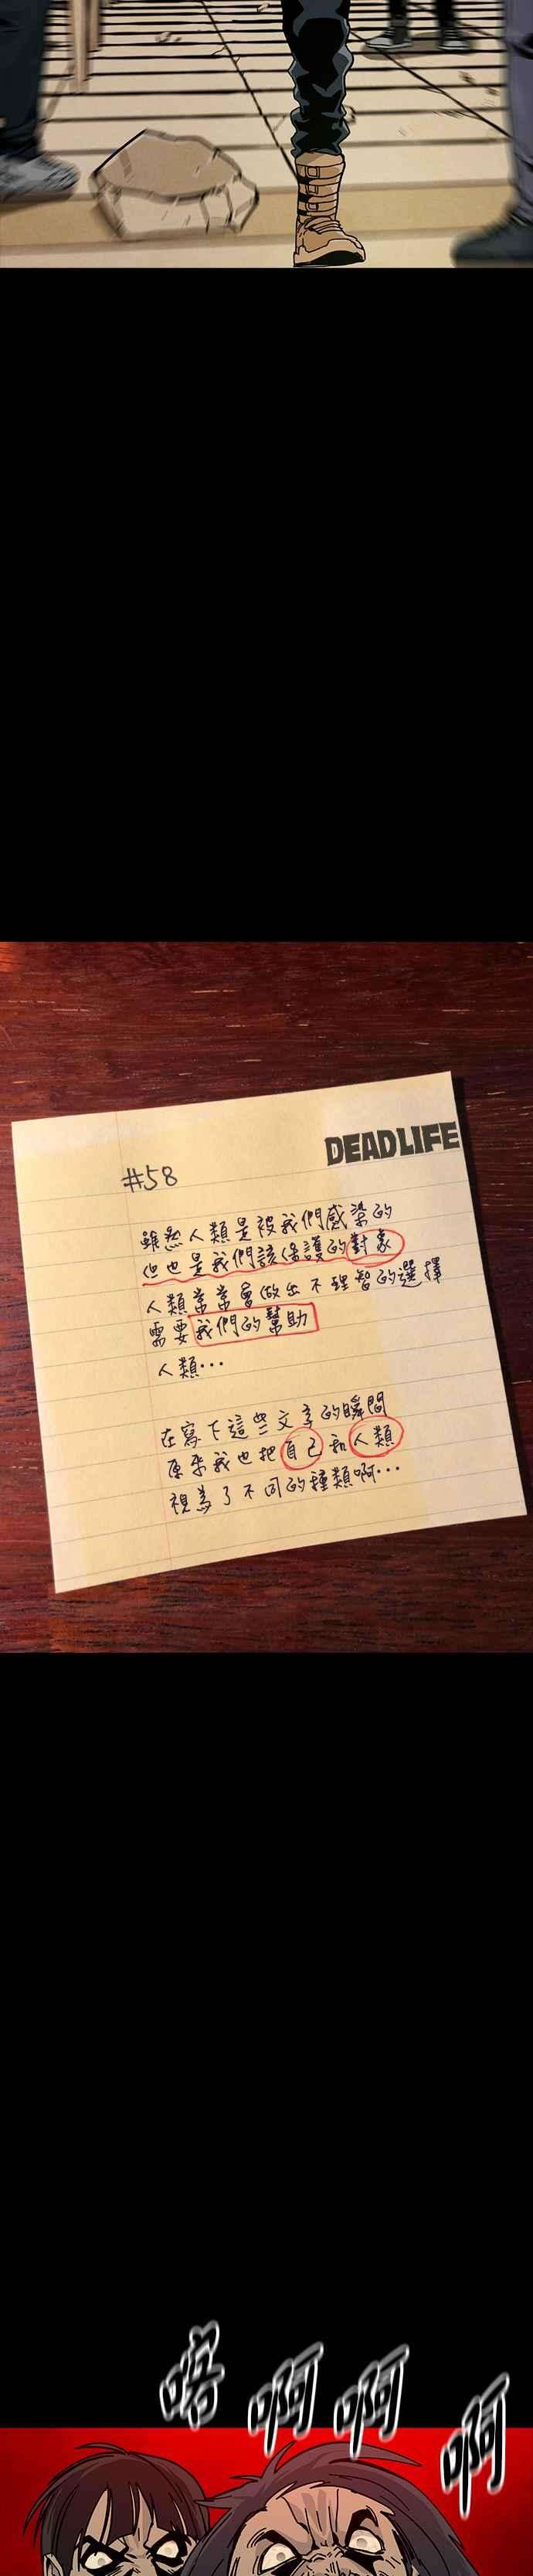 DEADLIFE
#58
雖然人類是被我們感染的
但也是我們該保護的對象
人類常常會做出不理智的選擇
需要我們的幫助
人類…
在寫下這些文字的瞬間
原來我也把自己和人類
視為了不同的種類啊…
唔啊啊啊